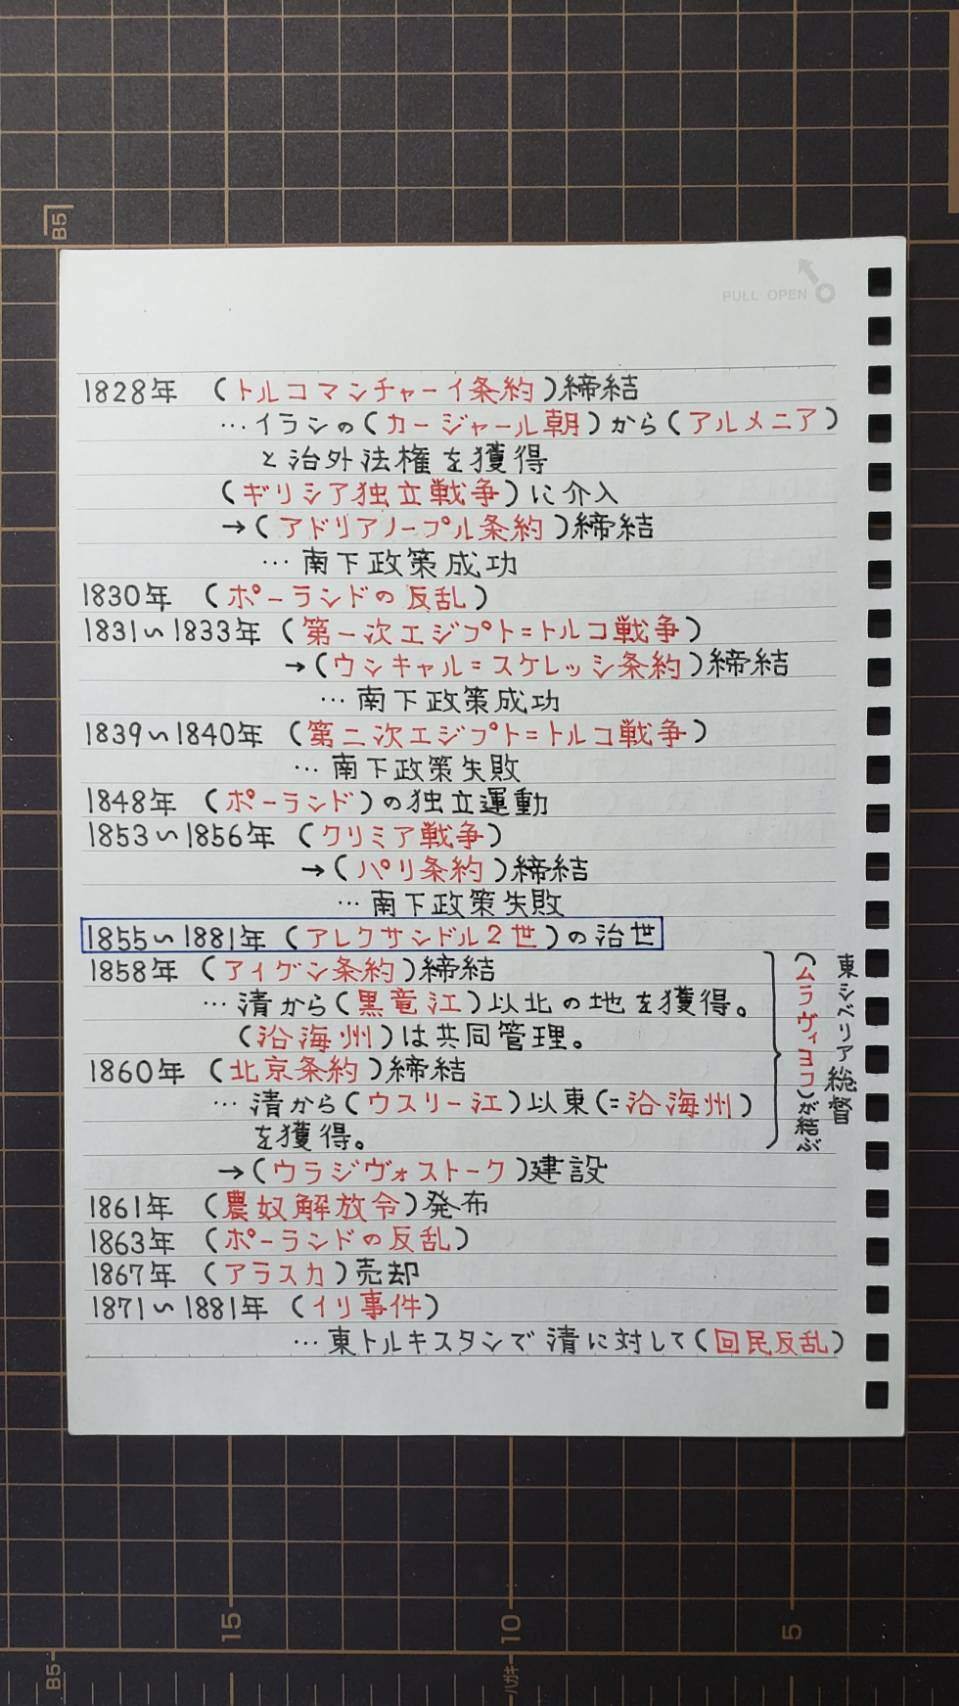 B5
PULL OPEN
1828年 (トルコマンチャーイ条約)締結
…イランの(カージャール朝)から(アルメニア)
と治外法権を獲得
(ギリシア独立戦争)に介入
→(アドリアノープル条約)締結
…南下政策成功
1830年 (ポーランドの反乱)
1831~1833年 (第一次エジプト=トルコ戦争)
→(ウンキャル=スケレッシ条約)締結
…南下政策成功
1839~1840年 (第二次エジプト=トルコ戦争)
…南下政策失敗
1848年 (ポーランド)の独立運動
1853~1856年 (クリミア戦争)
→(パリ条約)締結
…南下政策失敗
1855~1881年 (アレクサンドル2世)の治世
1858年 (アイグン条約)締結
…清から(黒竜江)以北の地を獲得。
(沿海州)は共同管理。
1860年 (北京条約)締結
…清から(ウスリー江)以東(=沿海州)
を獲得。
東シベリア総督
(ムラヴィヨフ)が結ぶ
→(ウラジヴォストーク)建設
1861年 (農奴解放令)発布
1863年 (ポーランドの反乱)
1867年 (アラスカ)売却
1871~1881年 (イリ事件)
…東トルキスタンで清に対して(回民反乱)
15
10
5
B5
ハガキ